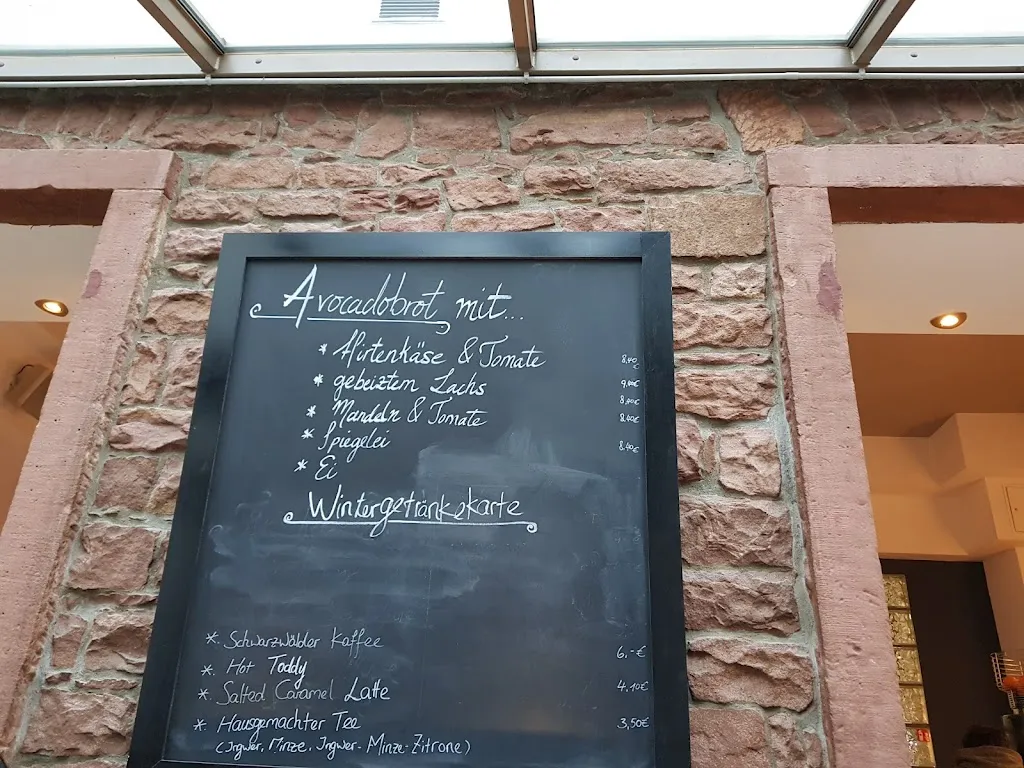 Avocadobrot mit...
* Hirtenkäse & Tomate 8,40
* gebeiztem Lachs 9,40€
* Mandeln & Tomate 8,40€
* Spiegelei 8,40€
* Ei 8,40€
Wintergetränkekarte
*. Schwarzwälder Kaffee
*. Hot Toddy 6,-€
*. Salted Caramel Latte 4,10€
*. Hausgemachter Tee 3,50€
(Ingwer, Minze, Ingwer-Minze-Zitrone)